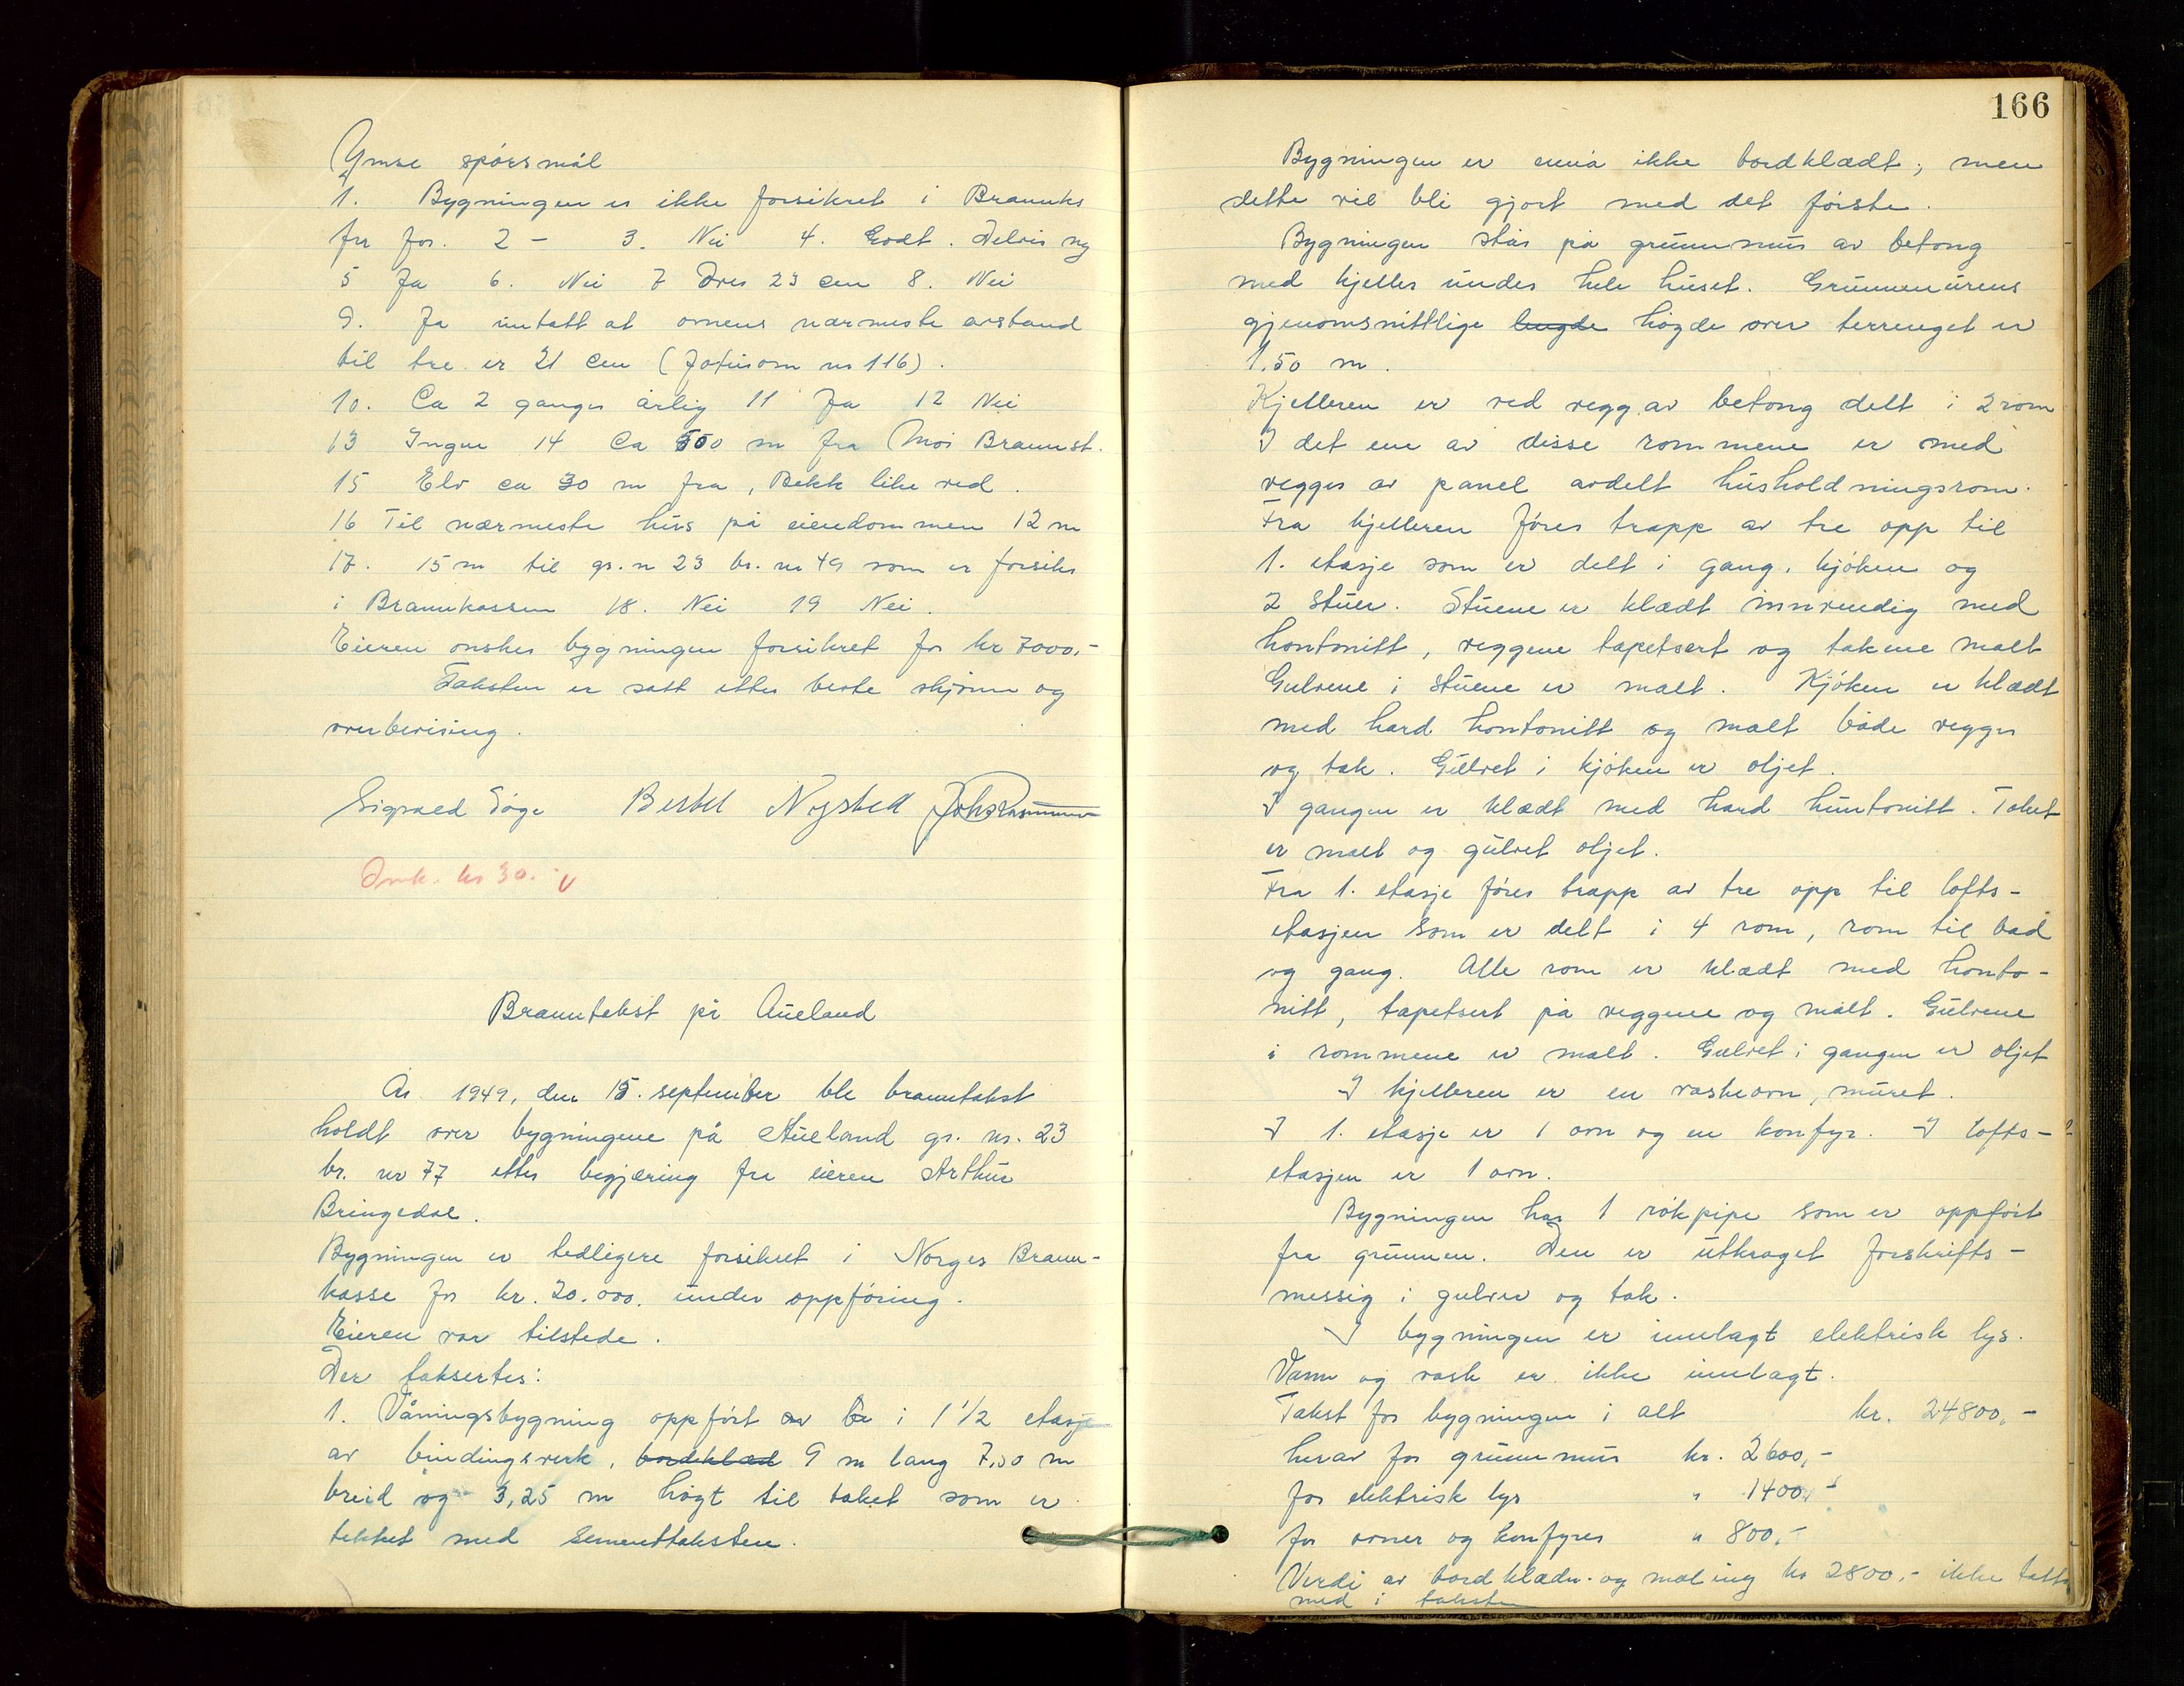 Ymse spörsmål
1. Bygningen er ikke forsikret i Brannks
fr för. 2 - 3. Nei 4. Godt. Delvis ny
5 Ja 6. Nei 7 Over 23 cm 8. Nei
9. Ja untatt at ovnens nærmeste avstand
til tre er 21 cm (Jøtulovn nr 116).
10. Ca 2 ganger årlig 11 Ja 12 Nei
13 Ingen 14 Ca 500 m fra Moi Brannst.
15 Elv ca 30 m fra, Bekk like ved.
16 Til nærmeste hus på eiendommen 12 m
17. 15 m til gr. n 23 br. nr 49 som er forsikr
i Brannkassen 18. Nei 19 Nei.
Eieren ønsker bygningen forsikret for kr 7000,-
Taksten er satt etter beste skjönn og
overbevising.
Sigvald Bertel Nystell Joh Rasmussen
Innk. kr 30.- V
Branntakst på Aueland
År 1949, den 15. september ble branntakst
holdt over bygningene på Aueland gr. nr. 23
br. nr 77 etter begjæring fra eieren Arthur
Bringedal.
Bygningen er tedligere forsikret i Norges Brann-
kasse for kr. 20.000. under oppföring.
Eieren var tilstede.
Der taksertes:
1. Våningsbygning oppfört i 1 1/2 etasje
av bindingsverk, bordklæd 9 m lang 7,50 m
breid og 3,25 m högt til taket som er
tekket med sementtaksten.
166
Bygningen er ennå ikke bordklædt; men
dette vil bli gjort med det förste.
Bygningen står på grunnmur av betong
med kjeller under hele huset. Grunnmurens
gjenomsnittlige lengde högde over terrenget er
1.50 m.
Kjelleren er ved vegg av betong delt i 2 rom
I det ene av disse rommene er med
vegger av panel avdelt husholdningsrom.
Fra kjelleren föres trapp av tre opp til
1. etasje som er delt i gang, kjöken og
2 stuer. Stuene er klædt innvendig med
hontonitt, veggene tapetsert og takene malt
Gulvene i stuene er malt. Kjöken er klædt
med hard hontonitt og malt både vegger
og tak. Gulvet i kjöken er oljet.
I gangen er klædt med hard huntonitt. Taket
er malt og gulvet oljet.
Fra 1. etasje föres trapp av tre opp til lofts-
etasjen som er delt i 4 rom, rom til bad
og gang. Alle rom er klædt med honto-
nitt, tapetsert på veggene og malt. Gulvene
i rommene er malt. Gulvet i gangen er oljet
I kjelleren er en vaskeovn, muret.
I 1. etasje er 1 ovn og en komfyr. I lofts-
etasjen er 1 ovn.
Bygningen har 1 rökpipe som er oppfört
fra grunnen. Den er utkraget forskrifts-
messig i gulver og tak.
I bygningen er innlagt elektrisk lys.
Vann og vask er ikke innlagt.
Takst for bygningen i alt kr. 24800,-
herav for grunnmur kr. 2600,-
for elektrisk lys " 1400,-
for ovner og komfyrer " 800,-
Verdi av bordklædn. og maling kr 2800,- ikke tatt
med i taksten